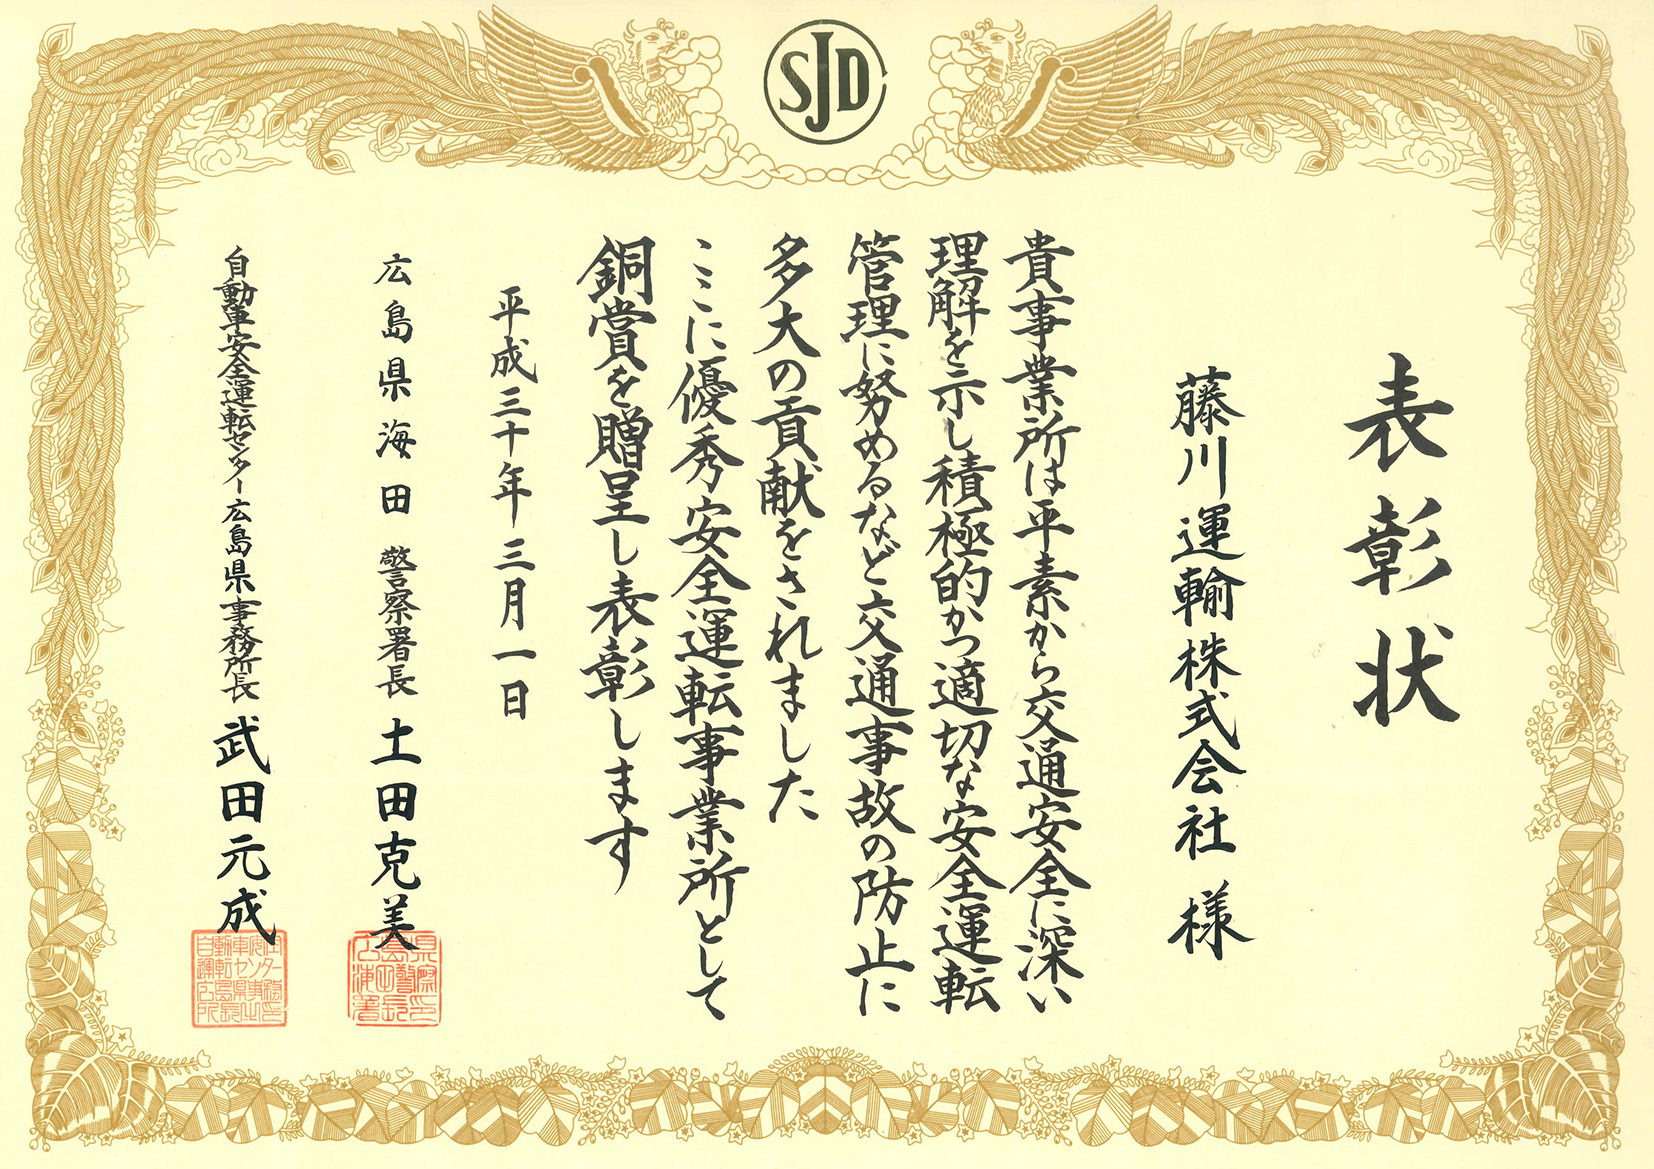 SJD
表彰状
藤川運輸株式会社 様
貴事業所は平素から交通安全に深い
理解を示し積極的かつ適切な安全運転
管理に努めるなど交通事故の防止に
多大の貢献をされました
ここに優秀安全運転事業所として
銅賞を贈呈し表彰します
平成三十年三月一日
広島県海田警察署長 土田克美
自動車安全運転センター広島県事務所長 武田元成